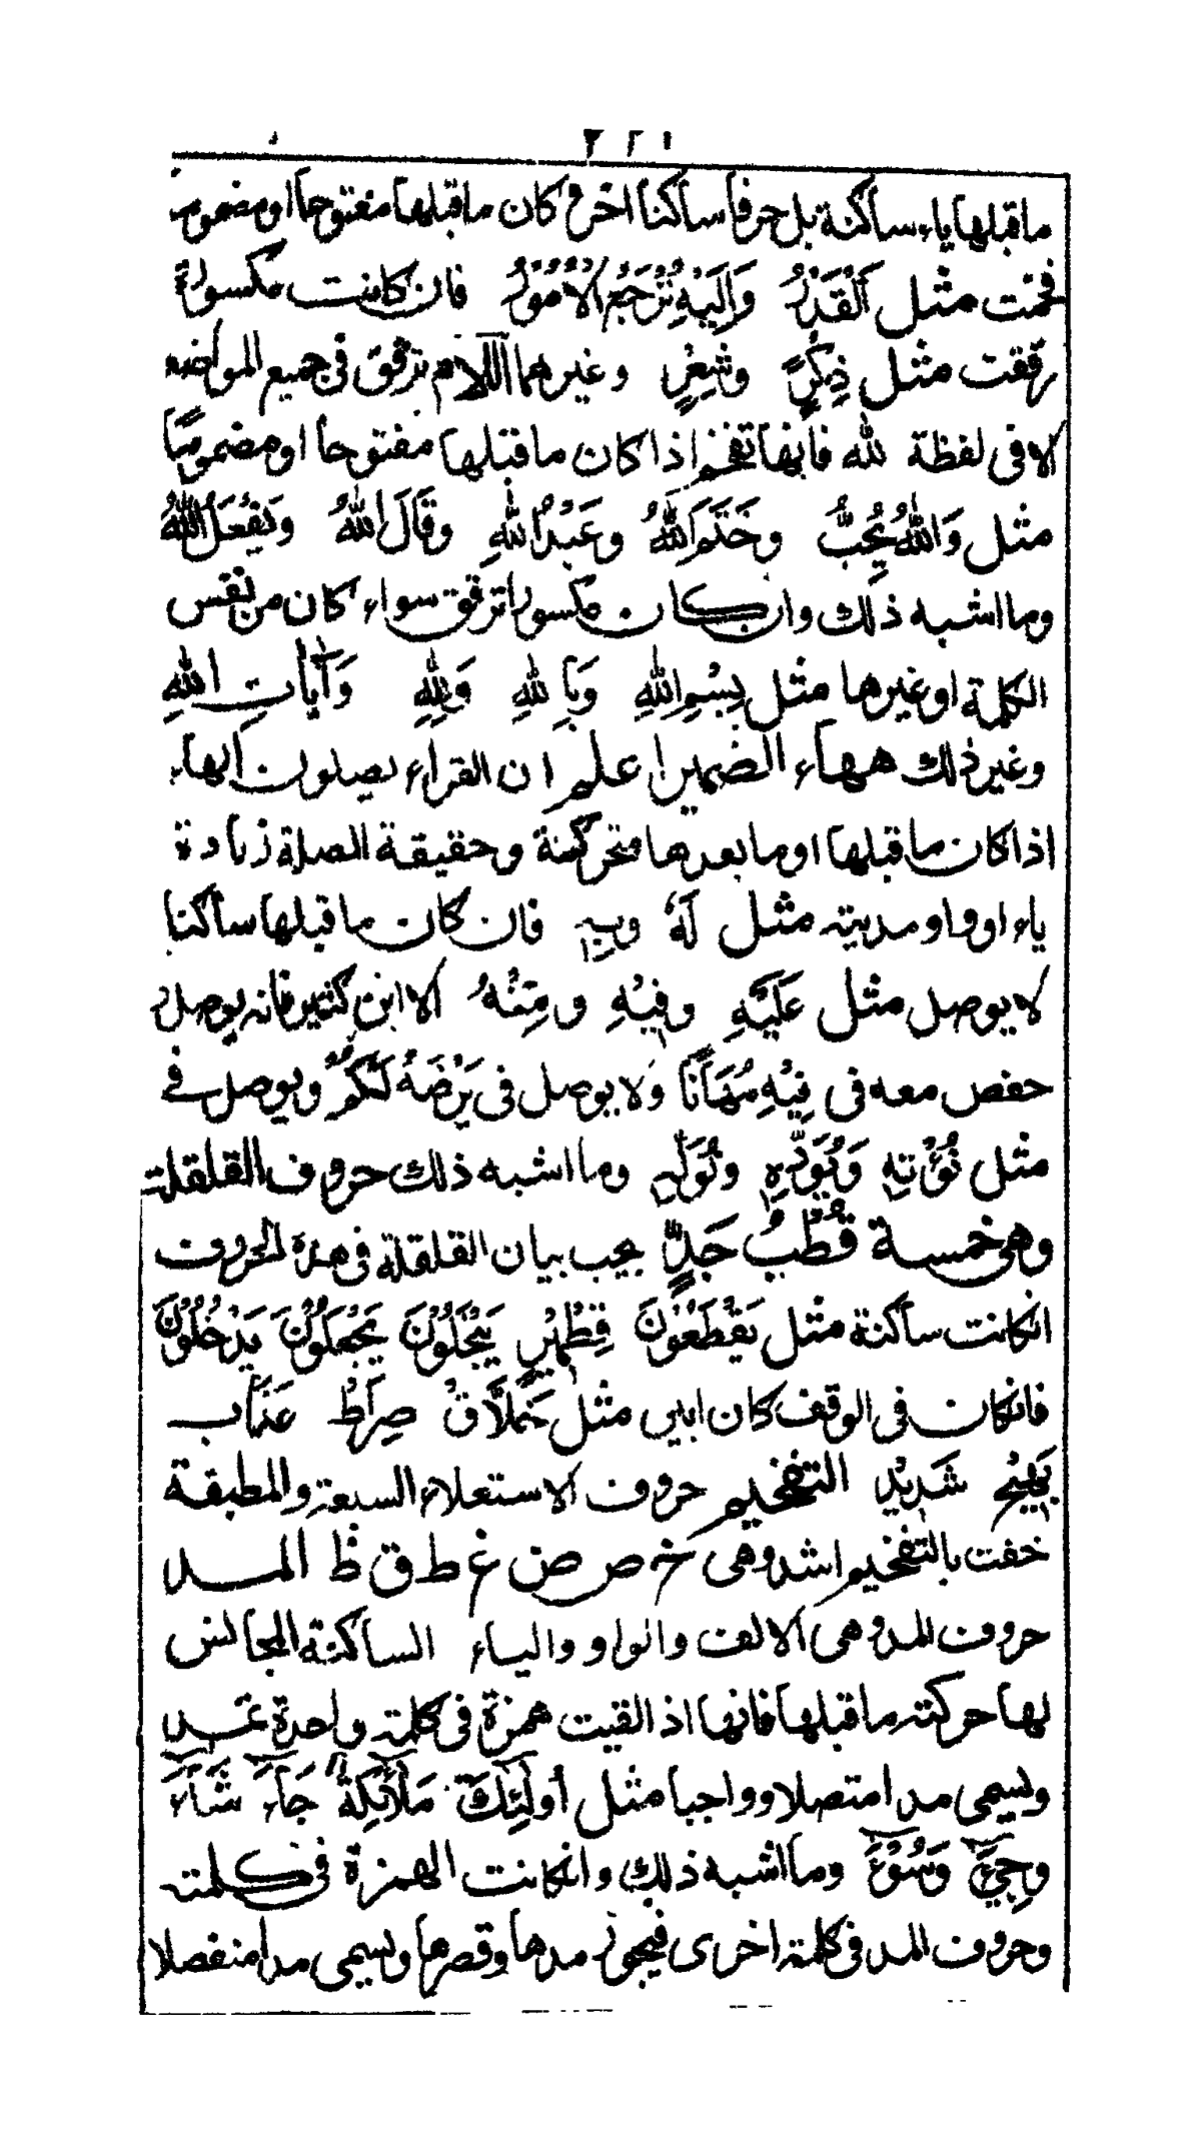 ٣٢١
ما قبلها ياء ساكنة بل حرفا ساكنا اخر و كان ما قبلها مفتوحا او مضموما
فخمت مثل اَلْقَدْرُ وَاِلَيْهِ تُرْجَعُ الْاُمُوْرُ فان كانت مكسورة
رققت مثل ذِكْرٍ وشِعْرٍ وغيرهما اللام ترقق فى جميع المواضع
الا فى لفظة لله فانها تفخم اذا كان ما قبلها مفتوحا او مضموما
مثل وَاللهُ يُحِبُّ وخَتَمَ اللهُ وعَبْدُ اللهِ وقَالَ اللهُ ويَفْعَلُ اللهُ
وما اشبه ذلك وان كان مكسورا ترقق سواء كان من نفس
الكلمة او غيرها مثل بِسْمِ اللهِ وَبِاللهِ وَلِلهِ وَآيَاتِ اللهِ
وغير ذلك هاء الضمير اعلم ان القراء يصلون الهاء
اذا كان ما قبلها او ما بعدها متحركة وحقيقة الصلة زيادة
ياء او واو مدية مثل لَهٗ وبِهٖ فان كان ما قبلها ساكنا
لا يوصل مثل عَلَيْهِ وفِيْهِ ومِنْهُ الا ابن كثير فانه يوصل و
حفص معه فى فِيْهِ مُهَانًا ولا يوصل فى يَرْضَهُ لَكُمْ ويوصل فے
مثل نُؤْتِهٖ وَيُؤَدِّهٖ ونُوَلِّهٖ وما اشبه ذلك حروف القلقلة
وهى خمسة قُطْبُ جَدٍّ يجب بيان القلقلة فى هذه الحروف
انكانت ساكنة مثل يَقْطَعُوْنَ قِطْمِيْرٍ يَجْعَلُوْنَ يَدْخُلُوْنَ
فانكان فى الوقف كان ابين مثل خَلَّاقْ صِرَاطْ عَذَاب
بَهِيْجْ شَدِيْدْ التفخيم حروف الاستعلاء السبعة والمطبقة
خفت بالتفخيم اشد وهى خ ص ض غ ط ق ظ المد
حروف المد وهى الالف والواو والياء الساكنة المجانس
لها حركة ما قبلها فانها اذ القيت همزة فى كلمة واحدة تمد
ويسمى مدا متصلا وواجبا مثل اُولٰٓئِكَ مَلٰٓئِكَةُ جَآءَ شَآءَ
وجِيْٓءَ وَسُوْٓءَ وما اشبه ذلك وانكانت الهمزة فى كلمة
وحروف المد فى كلمة اخرى فيجوز مدها وقصرها ويسمى مدا منفصلا